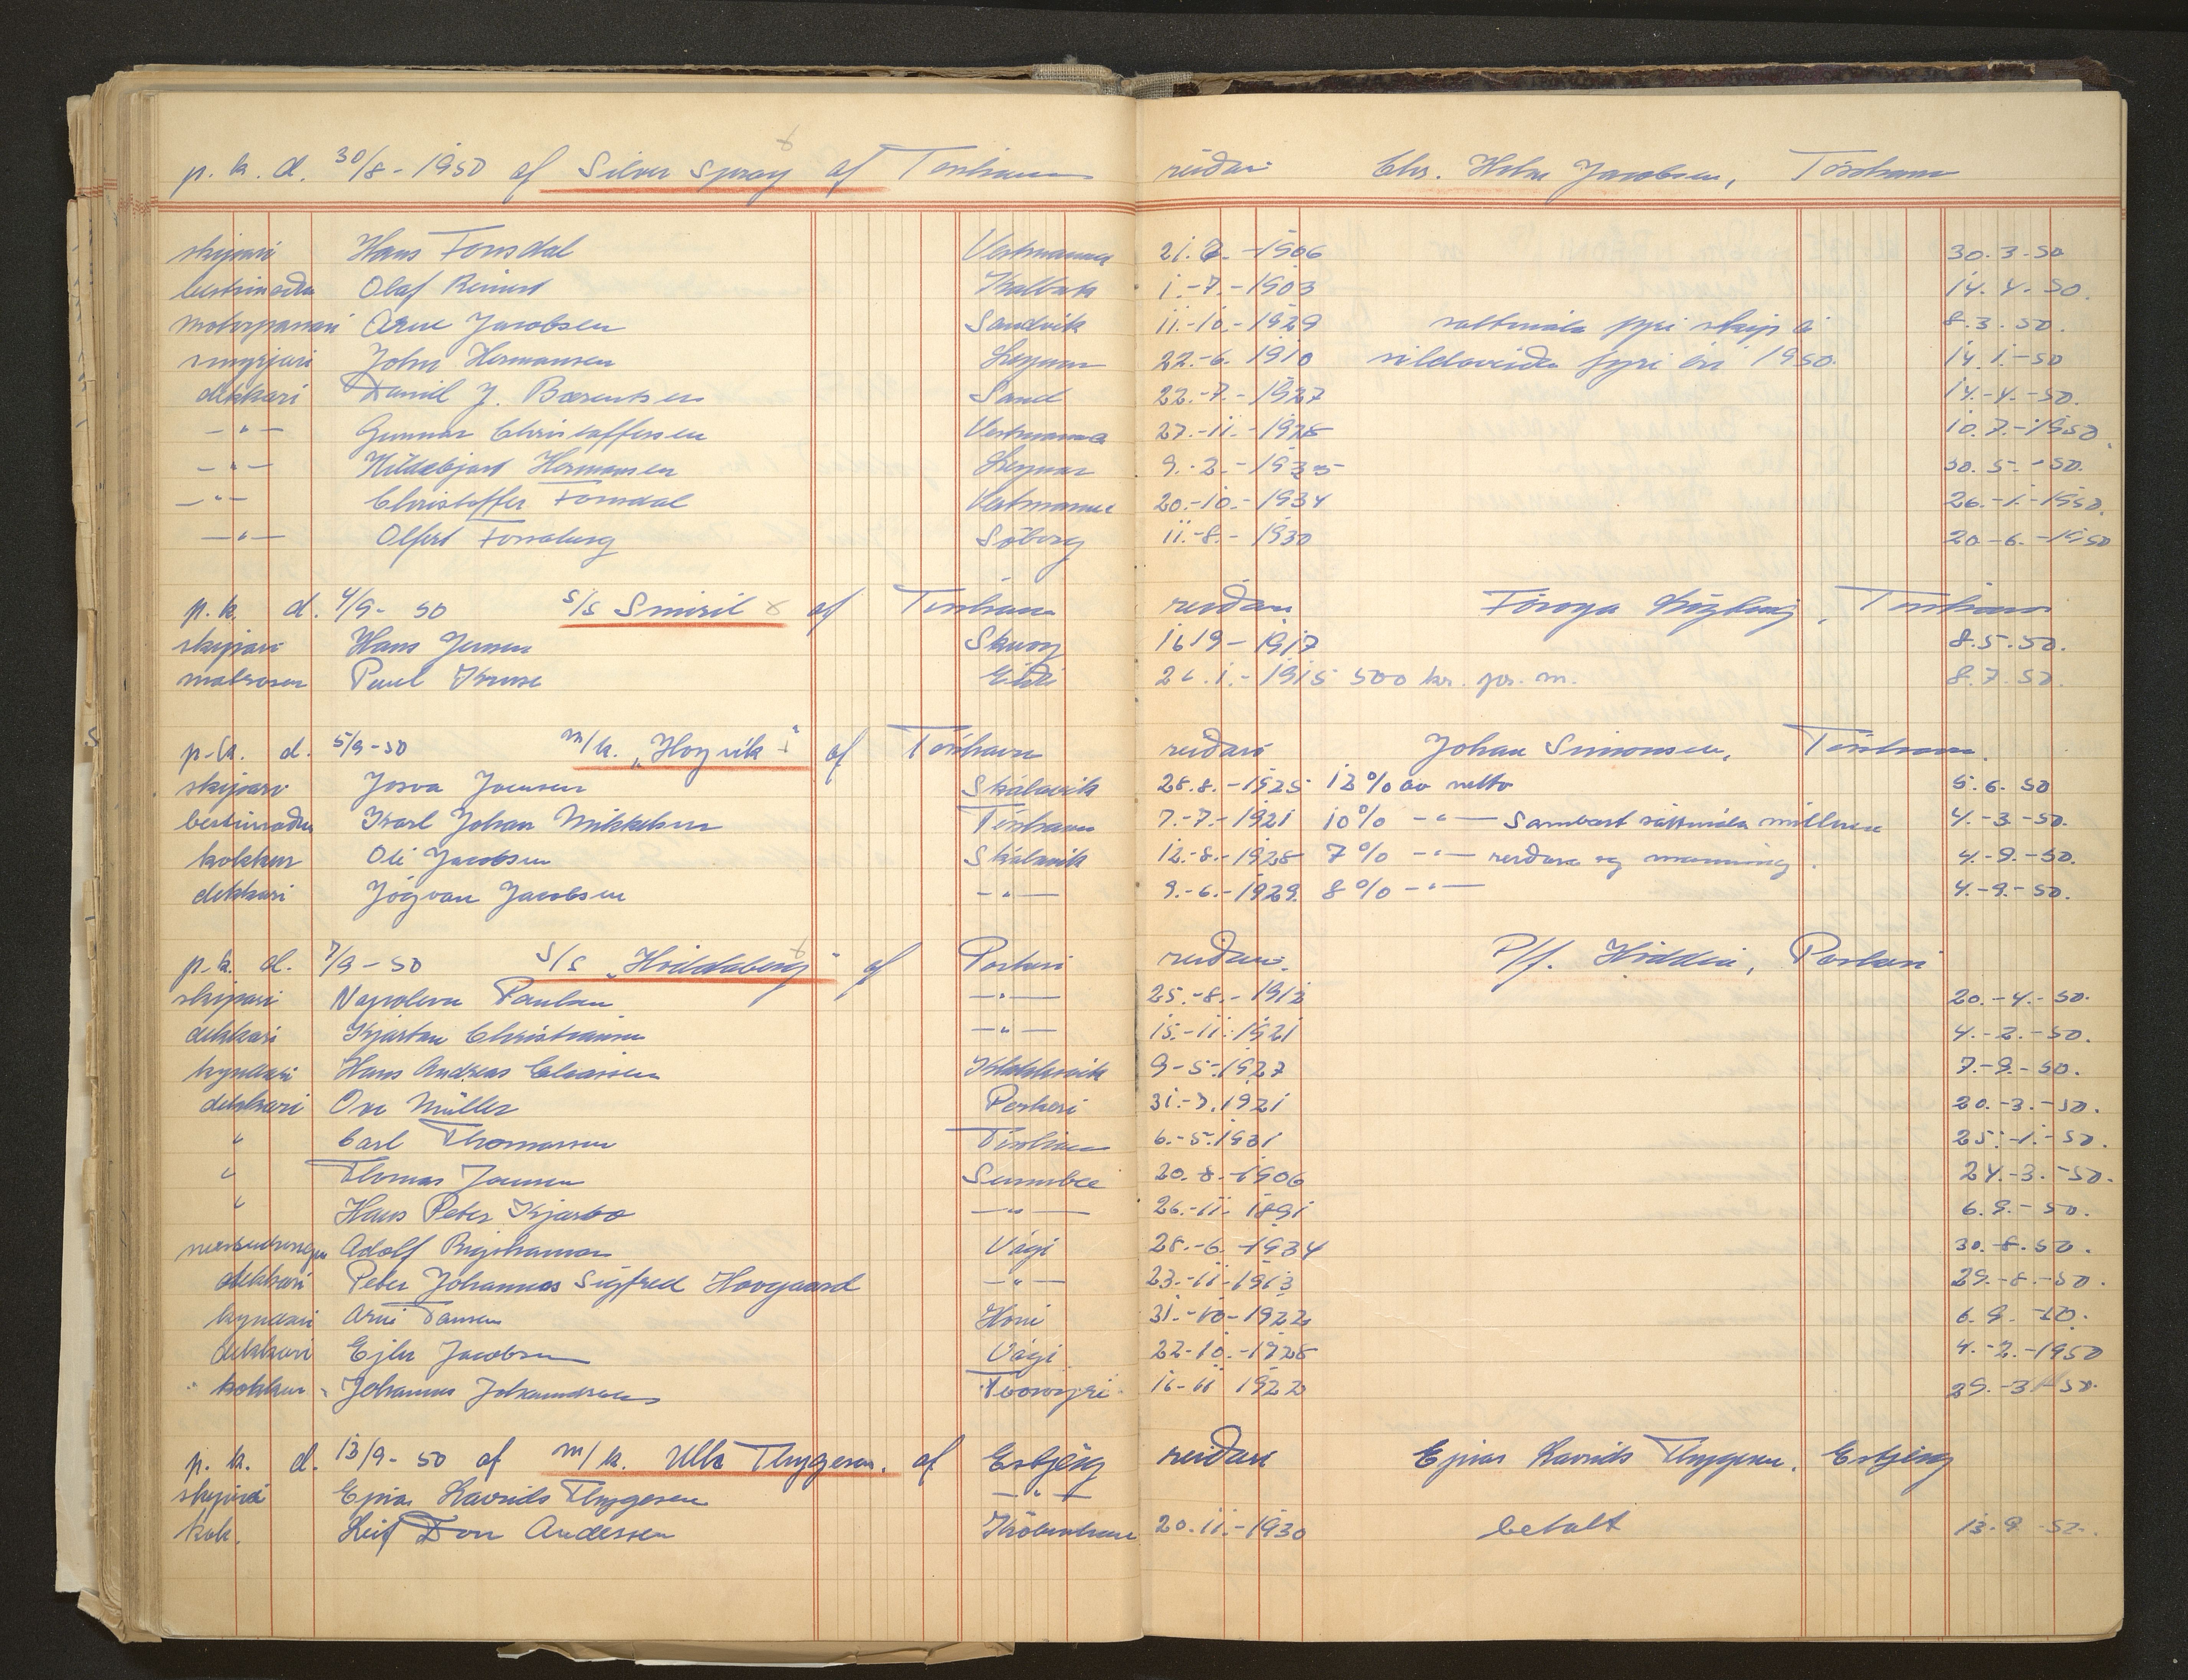 p. k. d. 30/8 - 1950 af Silver Spray af Tórshavn reiðari Chr. Holm Jacobsen, Tórshavn
skipari Hans Fornsdal Vestmanna 21. 2. - 1906 30. 3. 50
bestimaður Olaf Reinert Kalbak 1. - 7. - 1903 14. 4. 50.
motorpassari Arne Jacobsen Sandvík 11. - 10. - 1929 sáttmála fyri skip á 8. 3. 50.
smyrjari John Hermansen Leynar 22. - 6. 1910 sildaveiðu fyri ári 1950. 14. 1. - 50
dekkari Daniel J. Bærentsen Sand 22. - 7. - 1927 14. - 4. - 50.
- " - Gunnar Christoffersen Vestmanna 27. - 11. - 1928 10. 7. - 1950.
- " - Hildebjart Hermansen Leynar 9. - 2. - 1935 30. 5. - 50.
- " - Christoffer Fornsdal Vestmanna 20. - 10. - 1934 26. - 1. - 1950.
- " - Olfert Søborg 11. - 8. - 1930 20 - 6. - 1950
p. k. d. 4/9 - 50 s/s Smiril af Tórshavn reiðari Føroya Tórshavn
skipari Hans Jensen Skuvoy 1619 - 1917 8. 5. 50.
matrosur Paul Kruse Eiði 26. 1. - 1915 500 kr. pr. m. 8. 7. 50.
p. k. d. 5/9 - 50 m/k. „Hoyvik" af Tórshavn reiðari Johan Simonsen, Tórshavn
skipari Josva Joensen Skálavík 28. 8. - 1925 12 % av netto 5. 6. 50
bestimaður Karl Johan Mikkelsen Tórshavn 7. - 7. - 1921 10 % - " - Sambart sáttmála millum 4. - 3. - 50.
kokkur Oli Jacobsen Skálavík 12. - 8. - 1928 7 % - " - reiðara og manning. 4. - 9. - 50.
dekkari Jógvan Jacobsen - " - 9. - 6. - 1929. 8 % - " - 4. - 9. - 50.
p. k. d. 7/9 - 50 S/s „ " af Porkeri reiðari. P/f. Porkeri
skipari Napoleon Poulsen - " - 25. - 8. - 1912 20. - 4. - 50.
dekkari Kjartan Christiansen - " - 15. - 11. 1921 4. - 2. - 50.
kyndari Hans Andreas Eliassen Klakksvík 9 - 5. 1927 7. - 9. - 50.
dekkari Ove Müller Porkeri 31. - 7. 1921 20. - 3. - 50.
" Carl Thomassen Tórshavn 6. - 5. 1931 25. - 1. - 50.
" Thomas Joensen Sumbee 20. - 8. - 1906 24. - 3. - 50.
" Hans Peter Kjærbo - " - 26. - 11. 1891 6. 9. - 50.
Adolf Vági 28. - 6. - 1934 30. - 8. 50.
dekkari Peter Johannes Sigfred Hovgaard - " - 23. - 11 - 1913 29. - 8. - 50.
kyndari Arni Hansen Hovi 31. - 10 - 1922 6. 9. - 50.
dekkari Ejler Jacobsen Vági 22 - 10. - 1928 4. - 2. - 1950
kokkur Johannus Johannesen Tvøroyri 16 - 11 1922 29. - 3. - 50.
p. k. d. 13/9 - 50 af m/k. Ulla Thygesen. af Esbjerg reiðari Ejnar Lavrids Thygesen. Esbjerg
skipari Ejnar Lavrids Thygesen - " -
kok. Leif Andersen København 20. 11. - 1930 betalt 13. 9. 50.